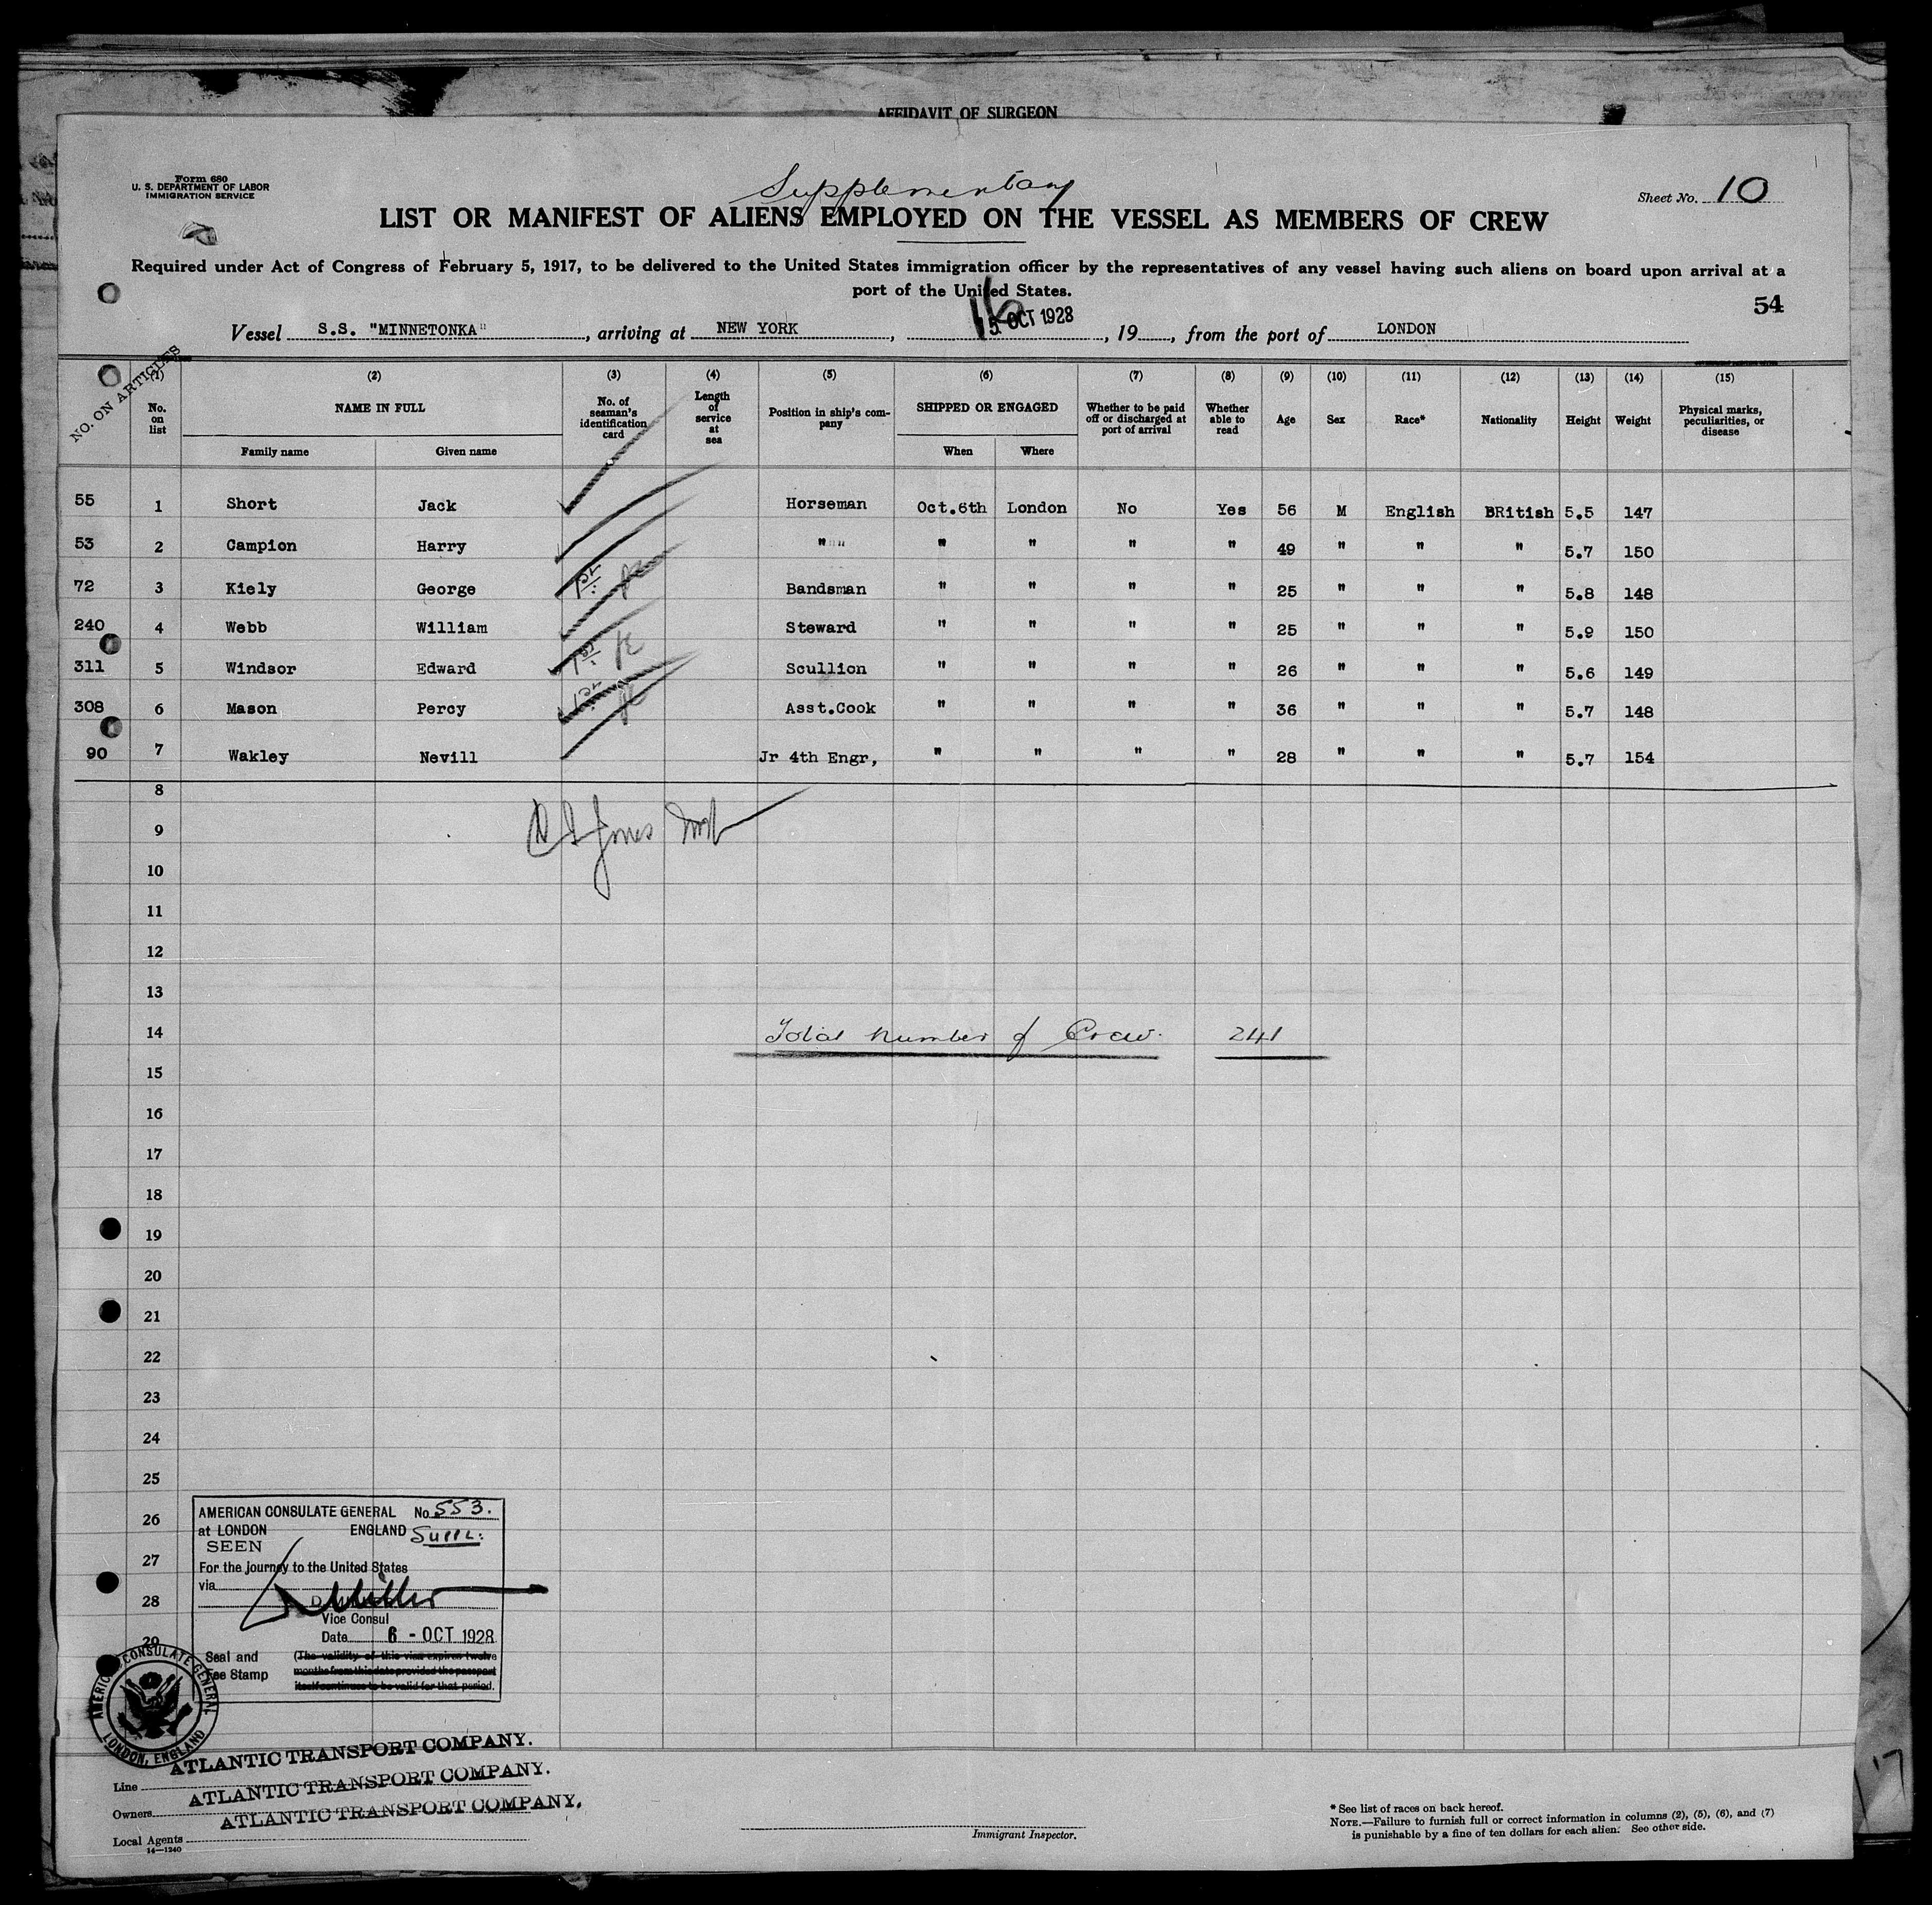 AFFIDAVIT OF SURGEON
Form 680
U. S. DEPARTMENT OF LABOR
IMMIGRATION SERVICE
Supplementary
Sheet No. 10
LIST OR MANIFEST OF ALIENS EMPLOYED ON THE VESSEL AS MEMBERS OF CREW
Required under Act of Congress of February 5, 1917, to be delivered to the United States immigration officer by the representatives of any vessel having such aliens on board upon arrival at a
port of the United States.
54
Vessel S.S. "MINNETONKA", arriving at NEW YORK, 16 OCT 1928, 19, from the port of LONDON
NO. ON ARTICLES
(1) (2) (3) (4) (5) (6) (7) (8) (9) (10) (11) (12) (13) (14) (15)
No. on list NAME IN FULL No. of seaman's identification card Length of service at sea Position in ship's company SHIPPED OR ENGAGED Whether to be paid off or discharged at port of arrival Whether able to read Age Sex Race* Nationality Height Weight Physical marks, peculiarities, or disease
Family name Given name When Where
55 1 Short Jack Horseman Oct.6th London No Yes 56 M English BRitish 5.5 147
53 2 Campion Harry " " " " " " 49 " " " 5.7 150
72 3 Kiely George Bandsman " " " " 25 " " " 5.8 148
240 4 Webb William Steward " " " " 25 " " " 5.9 150
311 5 Windsor Edward Scullion " " " " 26 " " " 5.6 149
308 6 Mason Percy Asst.Cook " " " " 36 " " " 5.7 148
90 7 Wakley Nevill Jr 4th Engr, " " " " 28 " " " 5.7 154
8
9
10
11
12
13
14 Total number of Crew. 241
15
16
17
18
19
20
21
22
23
24
25
26
27
28
29
AMERICAN CONSULATE GENERAL No 553.
at LONDON ENGLAND Suppl:
SEEN
For the journey to the United States
via
Vice Consul
Date 6 - OCT 1928
Seal and (The validity of this visa expires twelve
Fee Stamp months from this date provided the passport
itself continues to be valid for that period.
AMERICAN CONSULATE GENERAL
LONDON, ENGLAND
Line ATLANTIC TRANSPORT COMPANY.
Owners ATLANTIC TRANSPORT COMPANY.
Local Agents ATLANTIC TRANSPORT COMPANY.
14—1240
Immigrant Inspector.
* See list of races on back hereof.
NOTE.—Failure to furnish full or correct information in columns (2), (5), (6), and (7)
is punishable by a fine of ten dollars for each alien. See other side.
17